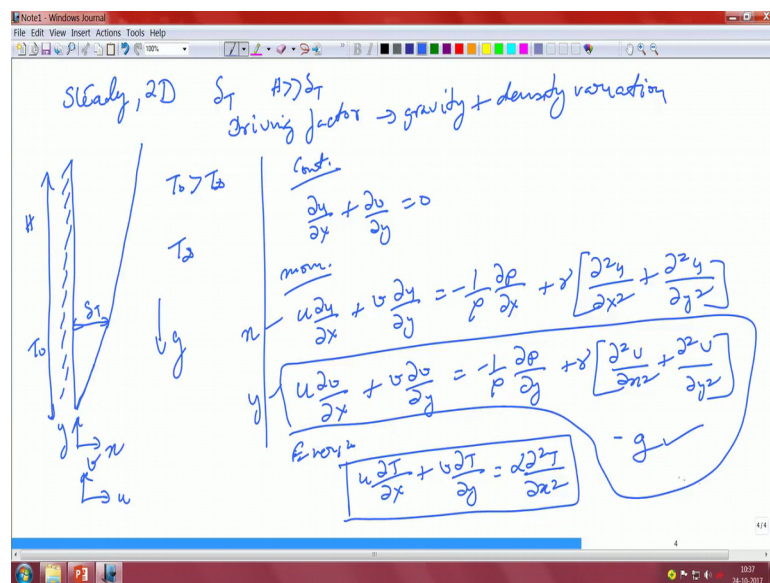 Note1 - Windows Journal
File Edit View Insert Actions Tools Help
100%
B I
Steady, 2D δ_T H>>δ_T
Driving factor → gravity + density variation
T₀ > T∞
T∞
H
δ_T
T₀
↓ g
y
x
v
u
Cont.
∂u/∂x + ∂v/∂y = 0
mom.
x u ∂u/∂x + v ∂u/∂y = -1/ρ ∂p/∂x + γ[∂²u/∂x² + ∂²u/∂y²]
y u ∂v/∂x + v ∂v/∂y = -1/ρ ∂p/∂y + γ[∂²v/∂x² + ∂²v/∂y²]
- g ✓
Energy
u ∂T/∂x + v ∂T/∂y = α ∂²T/∂x²
4/4
4
10:37
24-10-2017